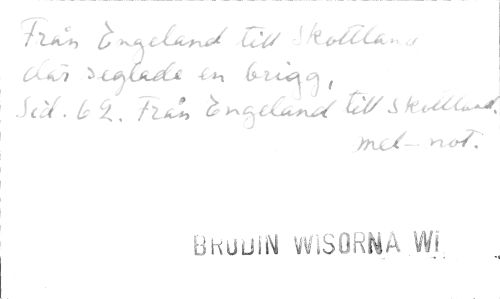 Från Engeland till Skottland
där seglade en brigg,
Sid. 62. Från Engeland till Skottland.
mel-not.
BRODIN WISORNA WI